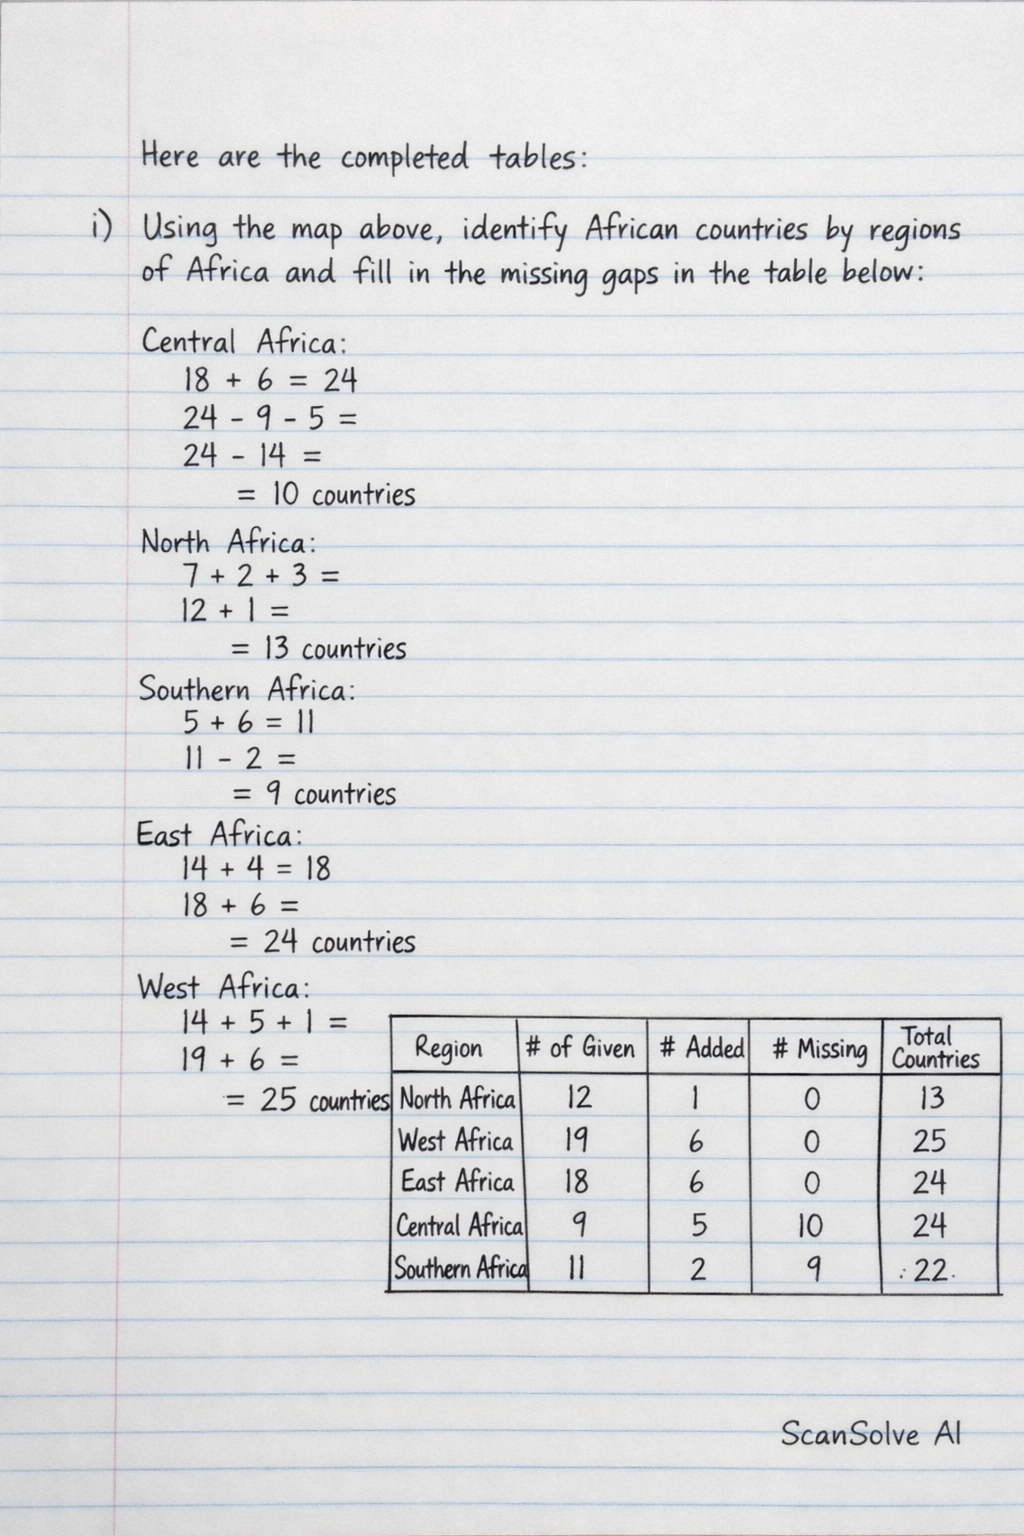 Here are the completed tables:
i) Using the map above, identify African countries by regions
of Africa and fill in the missing gaps in the table below:
Central Africa:
18 + 6 = 24
24 - 9 - 5 =
24 - 14 =
= 10 countries
North Africa:
7 + 2 + 3 =
12 + 1 =
= 13 countries
Southern Africa:
5 + 6 = 11
11 - 2 =
= 9 countries
East Africa:
14 + 4 = 18
18 + 6 =
= 24 countries
West Africa:
14 + 5 + 1 =
19 + 6 =
= 25 countries
Region # of Given # Added # Missing Total Countries
North Africa 12 1 0 13
West Africa 19 6 0 25
East Africa 18 6 0 24
Central Africa 9 5 10 24
Southern Africa 11 2 9 22
ScanSolve AI